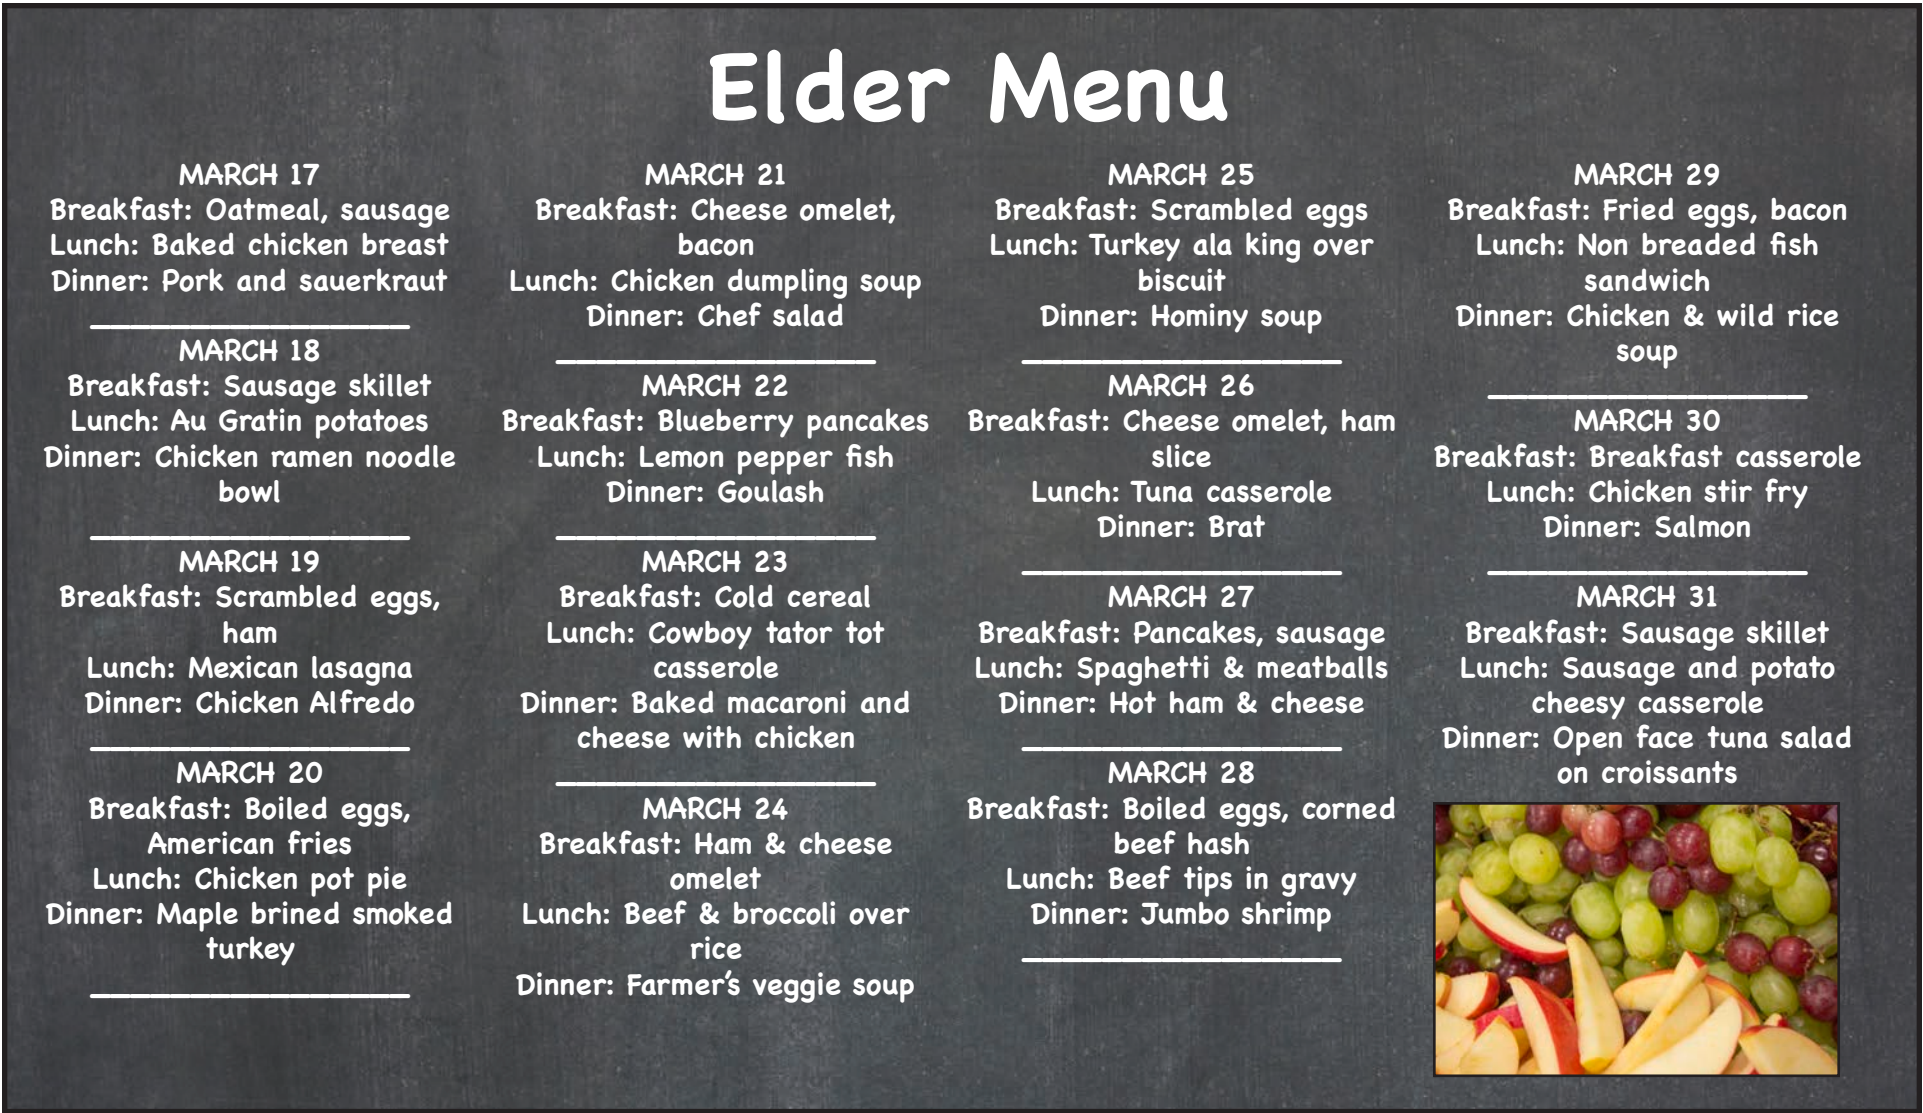 Elder Menu
MARCH 17
Breakfast: Oatmeal, sausage
Lunch: Baked chicken breast
Dinner: Pork and sauerkraut
________________
MARCH 18
Breakfast: Sausage skillet
Lunch: Au Gratin potatoes
Dinner: Chicken ramen noodle
bowl
________________
MARCH 19
Breakfast: Scrambled eggs,
ham
Lunch: Mexican lasagna
Dinner: Chicken Alfredo
________________
MARCH 20
Breakfast: Boiled eggs,
American fries
Lunch: Chicken pot pie
Dinner: Maple brined smoked
turkey
________________
MARCH 21
Breakfast: Cheese omelet,
bacon
Lunch: Chicken dumpling soup
Dinner: Chef salad
________________
MARCH 22
Breakfast: Blueberry pancakes
Lunch: Lemon pepper fish
Dinner: Goulash
________________
MARCH 23
Breakfast: Cold cereal
Lunch: Cowboy tator tot
casserole
Dinner: Baked macaroni and
cheese with chicken
________________
MARCH 24
Breakfast: Ham & cheese
omelet
Lunch: Beef & broccoli over
rice
Dinner: Farmer’s veggie soup
MARCH 25
Breakfast: Scrambled eggs
Lunch: Turkey ala king over
biscuit
Dinner: Hominy soup
________________
MARCH 26
Breakfast: Cheese omelet, ham
slice
Lunch: Tuna casserole
Dinner: Brat
________________
MARCH 27
Breakfast: Pancakes, sausage
Lunch: Spaghetti & meatballs
Dinner: Hot ham & cheese
________________
MARCH 28
Breakfast: Boiled eggs, corned
beef hash
Lunch: Beef tips in gravy
Dinner: Jumbo shrimp
________________
MARCH 29
Breakfast: Fried eggs, bacon
Lunch: Non breaded fish
sandwich
Dinner: Chicken & wild rice
soup
________________
MARCH 30
Breakfast: Breakfast casserole
Lunch: Chicken stir fry
Dinner: Salmon
________________
MARCH 31
Breakfast: Sausage skillet
Lunch: Sausage and potato
cheesy casserole
Dinner: Open face tuna salad
on croissants